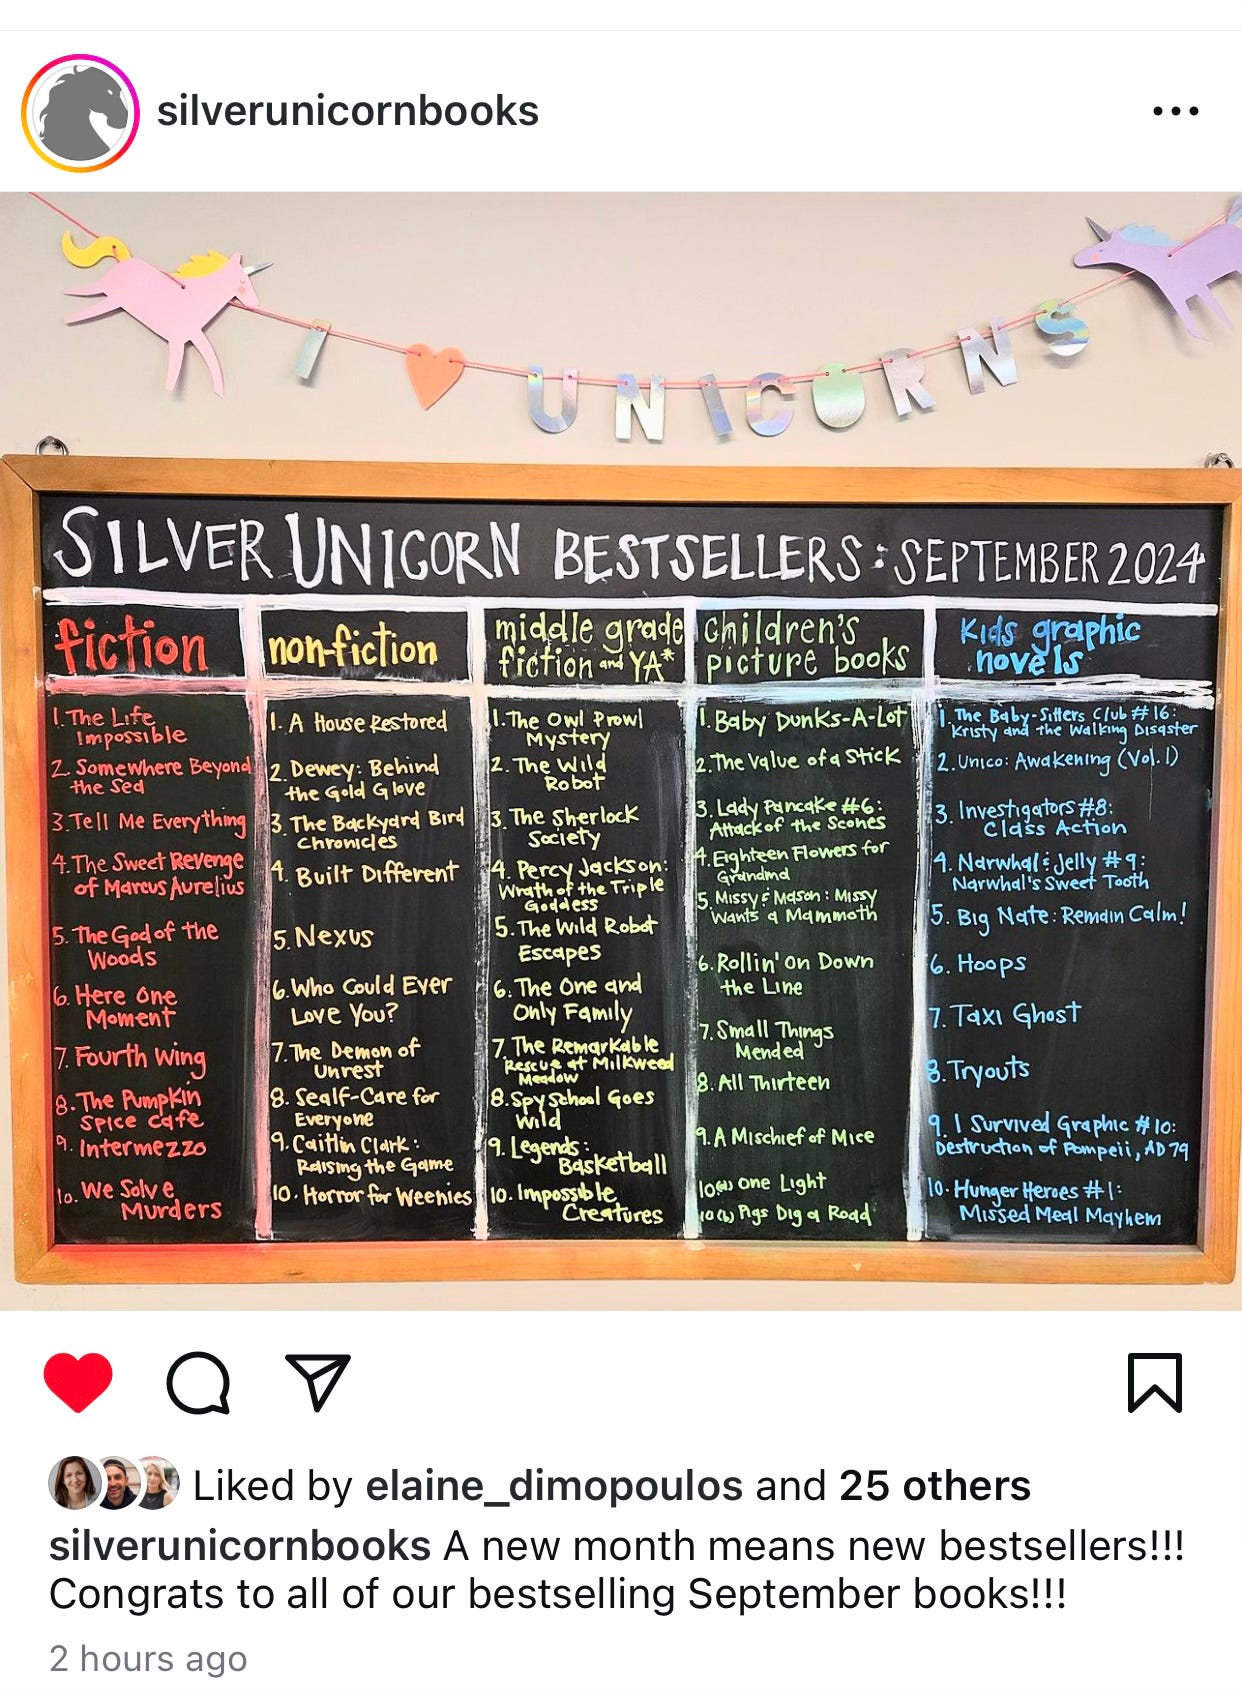 silverunicornbooks
I ♥ UNICORNS
SILVER UNICORN BESTSELLERS: SEPTEMBER 2024
fiction
1. The Life
Impossible
2. Somewhere Beyond
the Sea
3. Tell Me Everything
4. The Sweet Revenge
of Marcus Aurelius
5. The God of the
Woods
6. Here One
Moment
7. Fourth Wing
8. The Pumpkin
Spice Cafe
9. Intermezzo
10. We Solve
Murders
non-fiction
1. A House Restored
2. Dewey: Behind
the Gold Glove
3. The Backyard Bird
Chronicles
4. Built Different
5. Nexus
6. Who Could Ever
Love You?
7. The Demon of
Unrest
8. Sealf-Care for
Everyone
9. Caitlin Clark:
Raising the Game
10. Horror for Weenies
middle grade
fiction and YA*
1. The Owl Prowl
Mystery
2. The Wild
Robot
3. The Sherlock
Society
4. Percy Jackson:
Wrath of the Triple
Goddess
5. The Wild Robot
Escapes
6. The One and
Only Family
7. The Remarkable
Rescue at Milkweed
Meadow
8. Spy School Goes
Wild
9. Legends:
Basketball
10. Impossible
Creatures
Children's
picture books
1. Baby Dunks-A-Lot
2. The Value of a Stick
3. Lady Pancake #6:
Attack of the Scones
4. Eighteen Flowers for
Grandma
5. Missy & Mason: Missy
Wants a Mammoth
6. Rollin' on Down
the Line
7. Small Things
Mended
8. All Thirteen
9. A Mischief of Mice
10(a) One Light
10(b) Pigs Dig a Road
Kids graphic
novels
1. The Baby-Sitters Club #16:
Kristy and the Walking Disaster
2. Unico: Awakening (Vol. 1)
3. Investigators #8:
Class Action
4. Narwhal & Jelly #9:
Narwhal's Sweet Tooth
5. Big Nate: Remain Calm!
6. Hoops
7. Taxi Ghost
8. Tryouts
9. I Survived Graphic #10:
Destruction of Pompeii, AD 79
10. Hunger Heroes #1:
Missed Meal Mayhem
Liked by elaine_dimopoulos and 25 others
silverunicornbooks A new month means new bestsellers!!!
Congrats to all of our bestselling September books!!!
2 hours ago